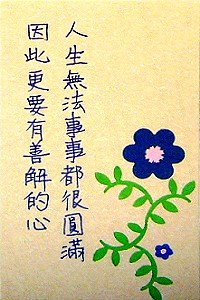 人生無法事事都很圓滿
因此更要有善解的心